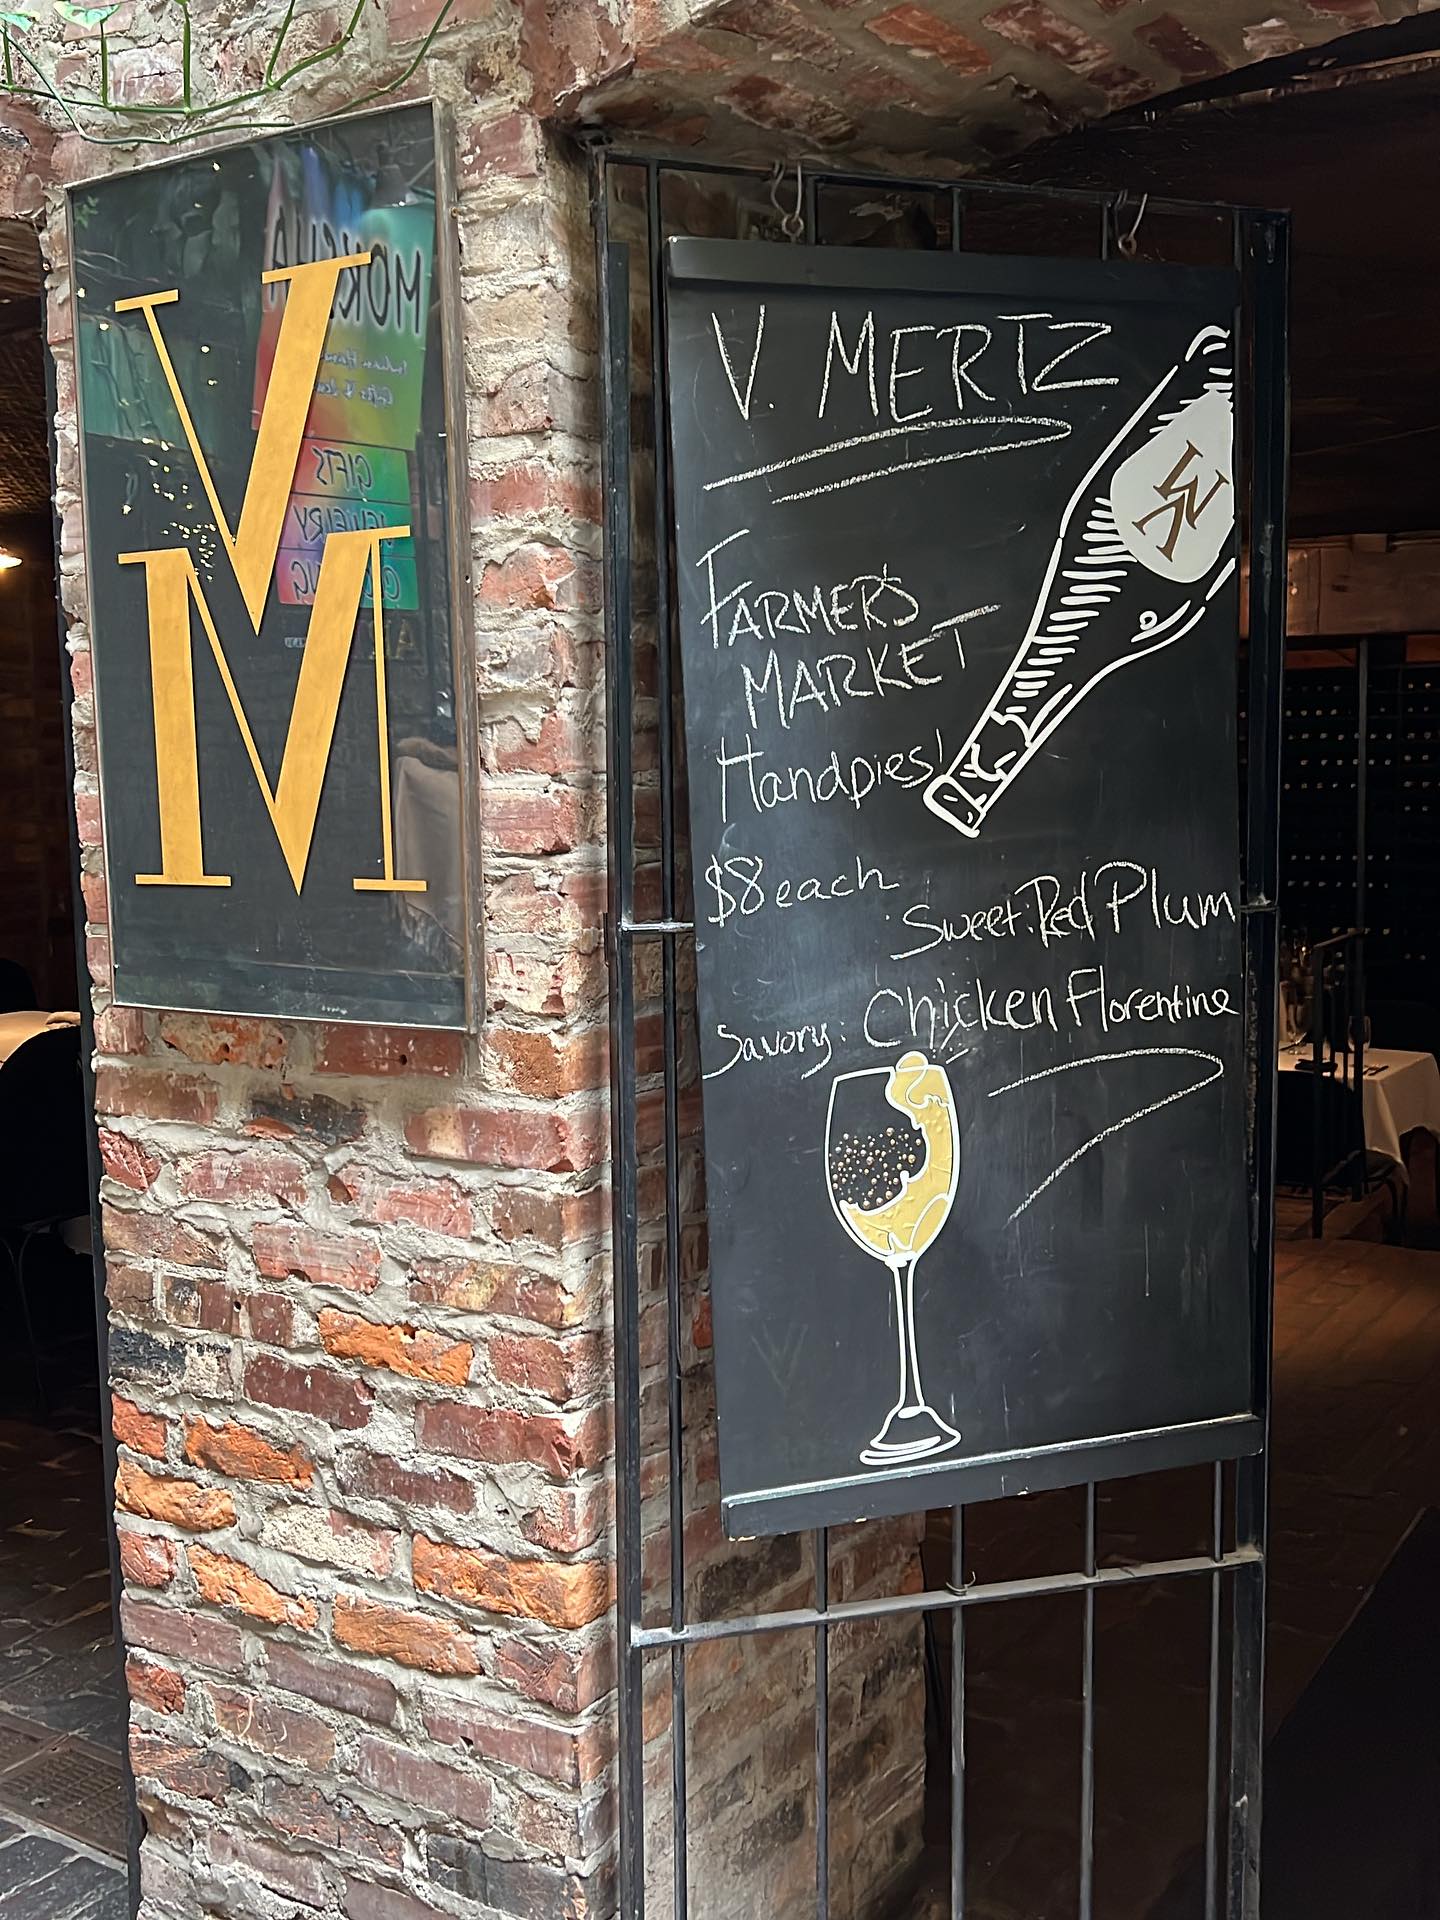 V
M
MONGLIA
GIFTS
JEWELRY
V. MERTZ
VM
FARMER'S
MARKET
Handpies!
$8 each
Sweet: Red Plum
Savory: Chicken Florentine